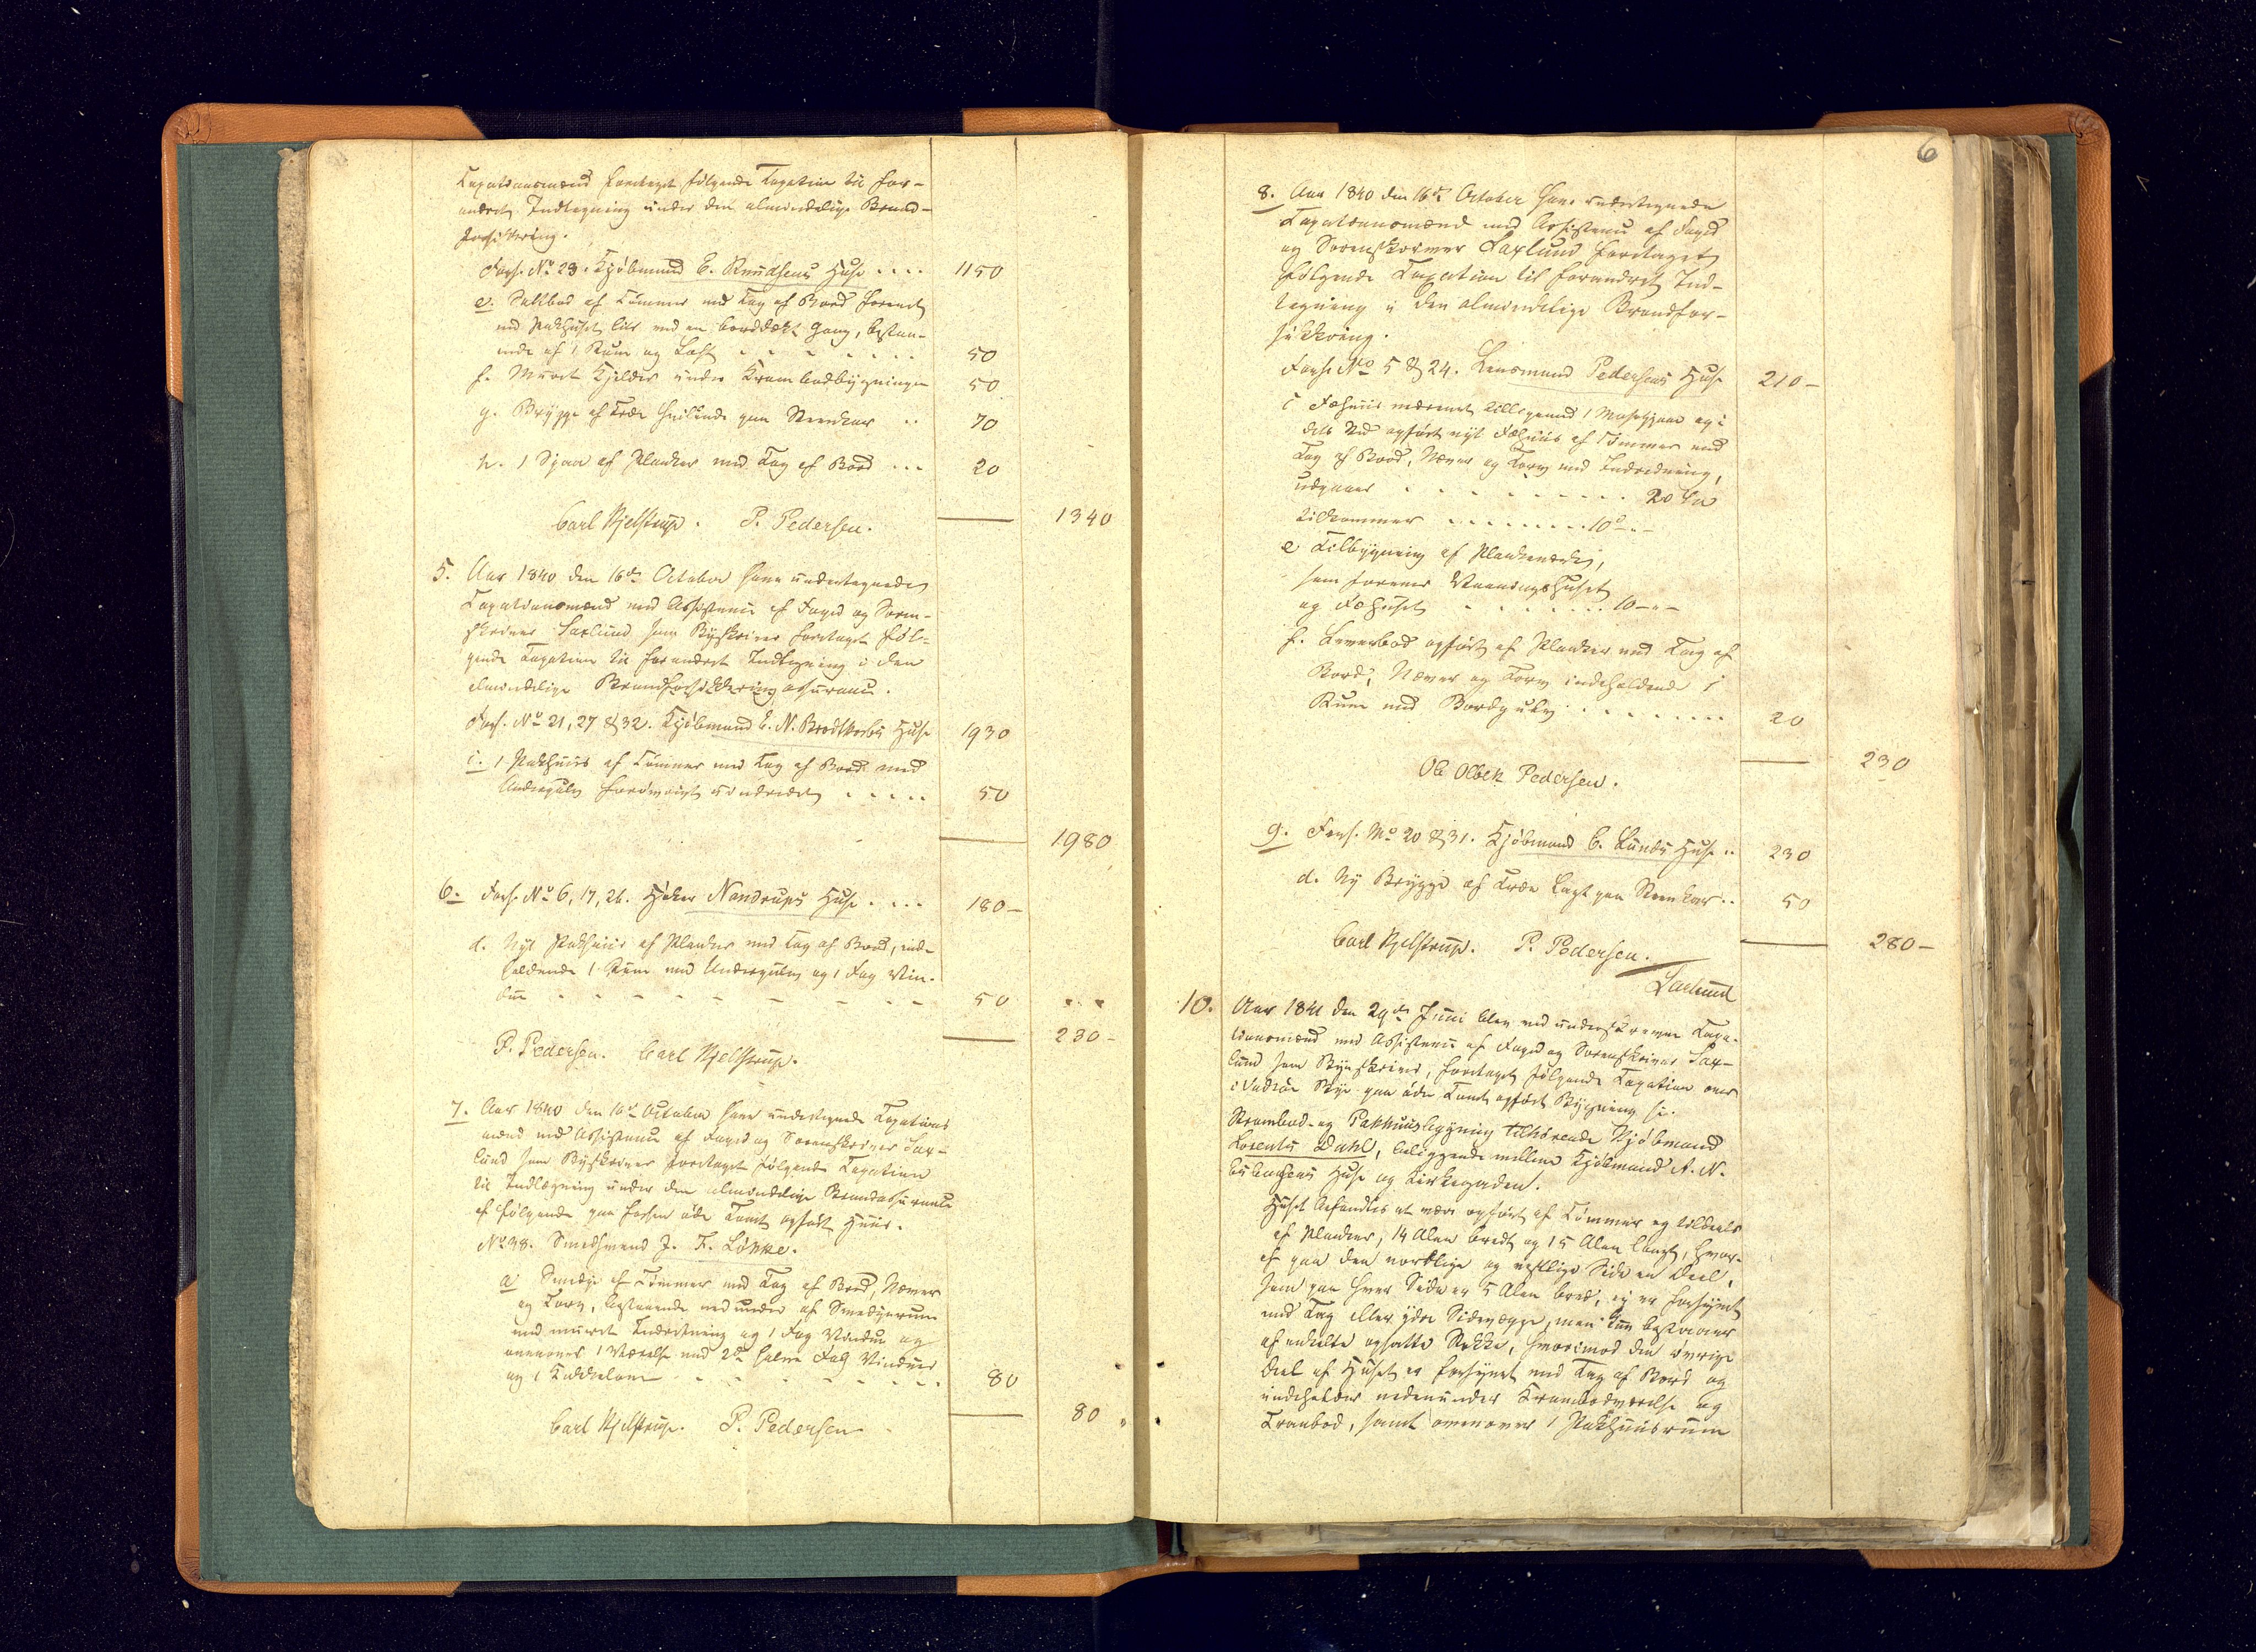 Taxationsmænd foretaget følgende Taxation til for-
andret Indtegning under den almindelige Brand-
forsikkring.
Fors. No 23. Kjøbmand C. Knudsens Huse .... 1150
e. Saltbod af Tømmer med Tag af Bord forenet
med Pakhuset lits ved en borddækt Gang, bestaa-
ende af 1 Rum og Loft 50
f. Muret Kjelder under Krambodbygningen 50
g. Brygge af Træ hvilende paa Steenkar .. 70
h. 1 Sjaa af Planker med Tag af Bord ... 20
Carl Kjelstrup. P. Pedersen. 1340
5. Aar 1840 den 16de October have undertegnede
Taxationsmænd med Assistence af Foged og Soren-
skriver Saxlund som Byskriver foretaget føl-
gende Taxation til forandret Indtegning i den
almindelige Brandforsikkring assurance.
Fors. No 21, 27 & 32. Kjøbmand E. N. Brodtkorbs Huse 1930
i. 1 Pakhuus af Tømmer med Tag af Bord med
Undergulv forøvrigt uindredet ..... 50
1980
6. Fors. No 6, 17, 26. Høker Nandrups Huse .... 180-
d. Nyt Pakhuus af Planker med Tag af Bord, inde-
holdende 1 Rum med Undergulv og 1 Fag Vin-
due 50
230-
P. Pedersen. Carl Kjelstrup.
7. Aar 1840 den 16de October have undertegnede Taxations
mænd med Assistence af Foged og Sorenskriver Sax-
lund som Byskriver foretaget følgende Taxation
til Indtegning under den almindelige Brandassurance
af følgende paa forhen øde Tomt opført Huus.
No 38. Smedsvend J. F. Lønke.
a Smedje af Tømmer med Tag af Bord, Næver
og Torv, bestaaende nedunder af Smedjerum
med muret Indretning og 1 Fag Vindue og
ovenover 1 Værelse med 2de halve Fag Vinduer
og 1 Kakkelovn 80
Carl Kjelstrup. P. Pedersen 80
6
8. Aar 1840 den 16de October have undertegnede
Taxationsmænd med Assistence af Foged
og Sorenskriver Saxlund foretaget
følgende Taxation til forandret Ind-
tegning i den almindelige Brandfor-
sikkring.
Fors. No 5 & 24. Lensmand Pedersens Huse 210-
i Fæhuus nedrevet tilligemed 1 og i
dets Sted opført nyt Fæhuus af Tømmer med
Tag af Bord, Næver og Torv med Indredning,
udgaaer 20
tilkommer ........ 10
e Tilbygning af Plankeværk,
som forener Vaaningshuset
og Fæhuset 10-"-
f. Leverbod opført af Planker med Tag af
Bord, Næver og Torv indeholdende 1
Rum med Bordgulv ........ 20
230
Ole Olsen Pedersen.
9. Fors. No 20 & 31. Kjøbmand C. Lunds Huse .. 230
d. Ny Brygge af Træe lagt paa Steenkar .. 50
Carl Kjelstrup. P. Pedersen. 280-
Saxlund
10. Aar 1841 den 29de Juni blev ved underskrevne Taxa-
tionsmænd med Assistence af Foged og Sorenskriver Sax-
lund som Byskriver, foretaget følgende Taxation over
i Vadsøe Bye paa øde Tomt opført Bygning
Krambod- og Pakhuusbygning tilhørende Kjøbmand
Lorents Dahl, beliggende mellem Kjøbmand A. N.
Huse og Kirkegaden.
Huset befandtes at være opført af Tømmer og tildeels
af Planker, 14 Alen bredt og 15 Alen langt, hvor-
af paa den nordlige og vestlige Side en Deel,
som paa hver Side er 5 Alen bred, ej er forsynet
med Tag eller ydre Sidevægge, men kun bestaaer
af enkelte opsatte Stokke, hvorimod den øvrige
Deel af Huset er forsynet med Tag af Bord og
indeholder nedenunder Krambodværelse og
Tranbod, samt ovenover 1 Pakhuusrum